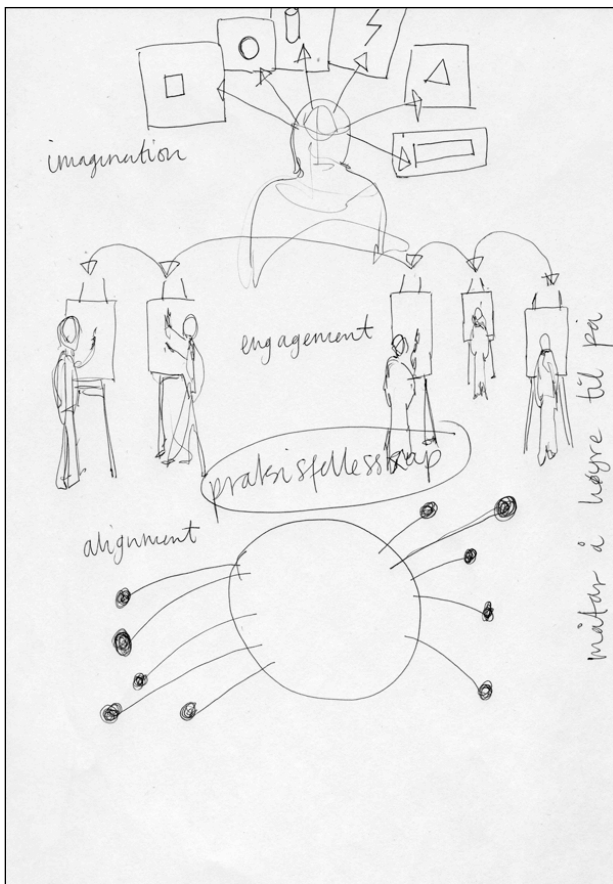 imagination
engagement
praksisfellesskap
alignment
måtar å høyre til på